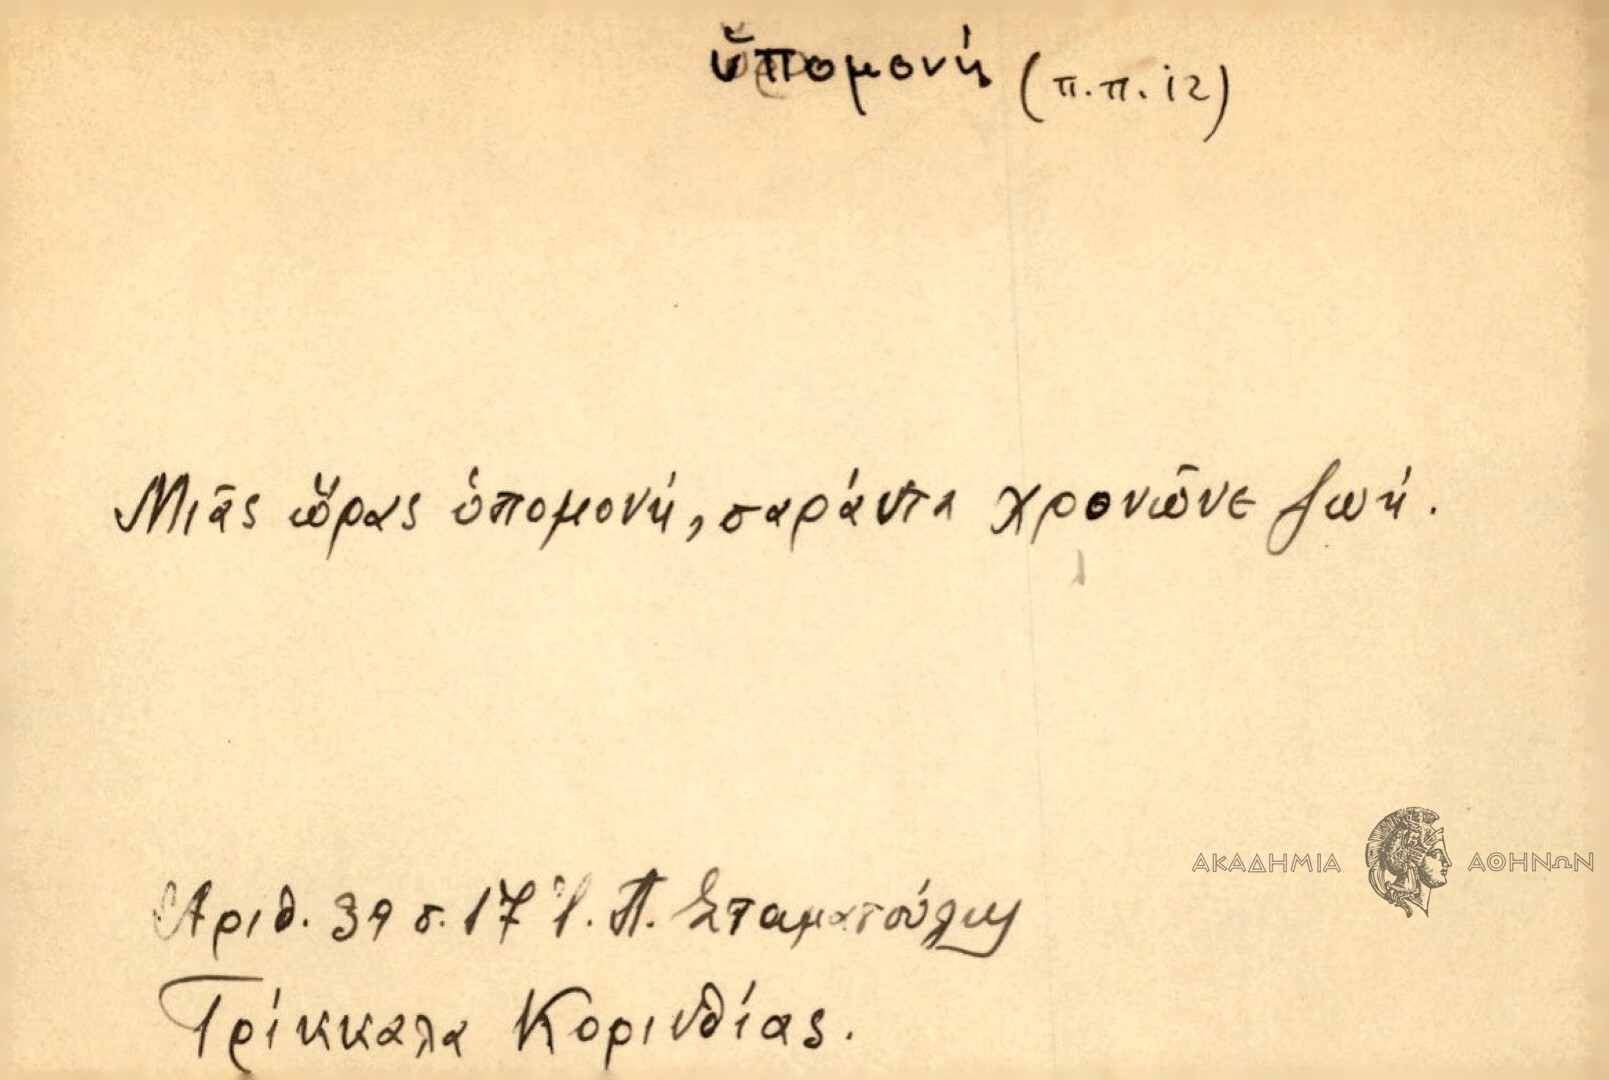 ὑπομονή (π.π. 12)
Μιᾶς ὥρας ὑπομονή, σαράντα χρονῶνε ζωή.
ΑΚΑΔΗΜΙΑ ΑΘΗΝΩΝ
Αριθ. 39 σ. 17 Π. Σταματούλης
Τρίκκαλα Κορινθίας.